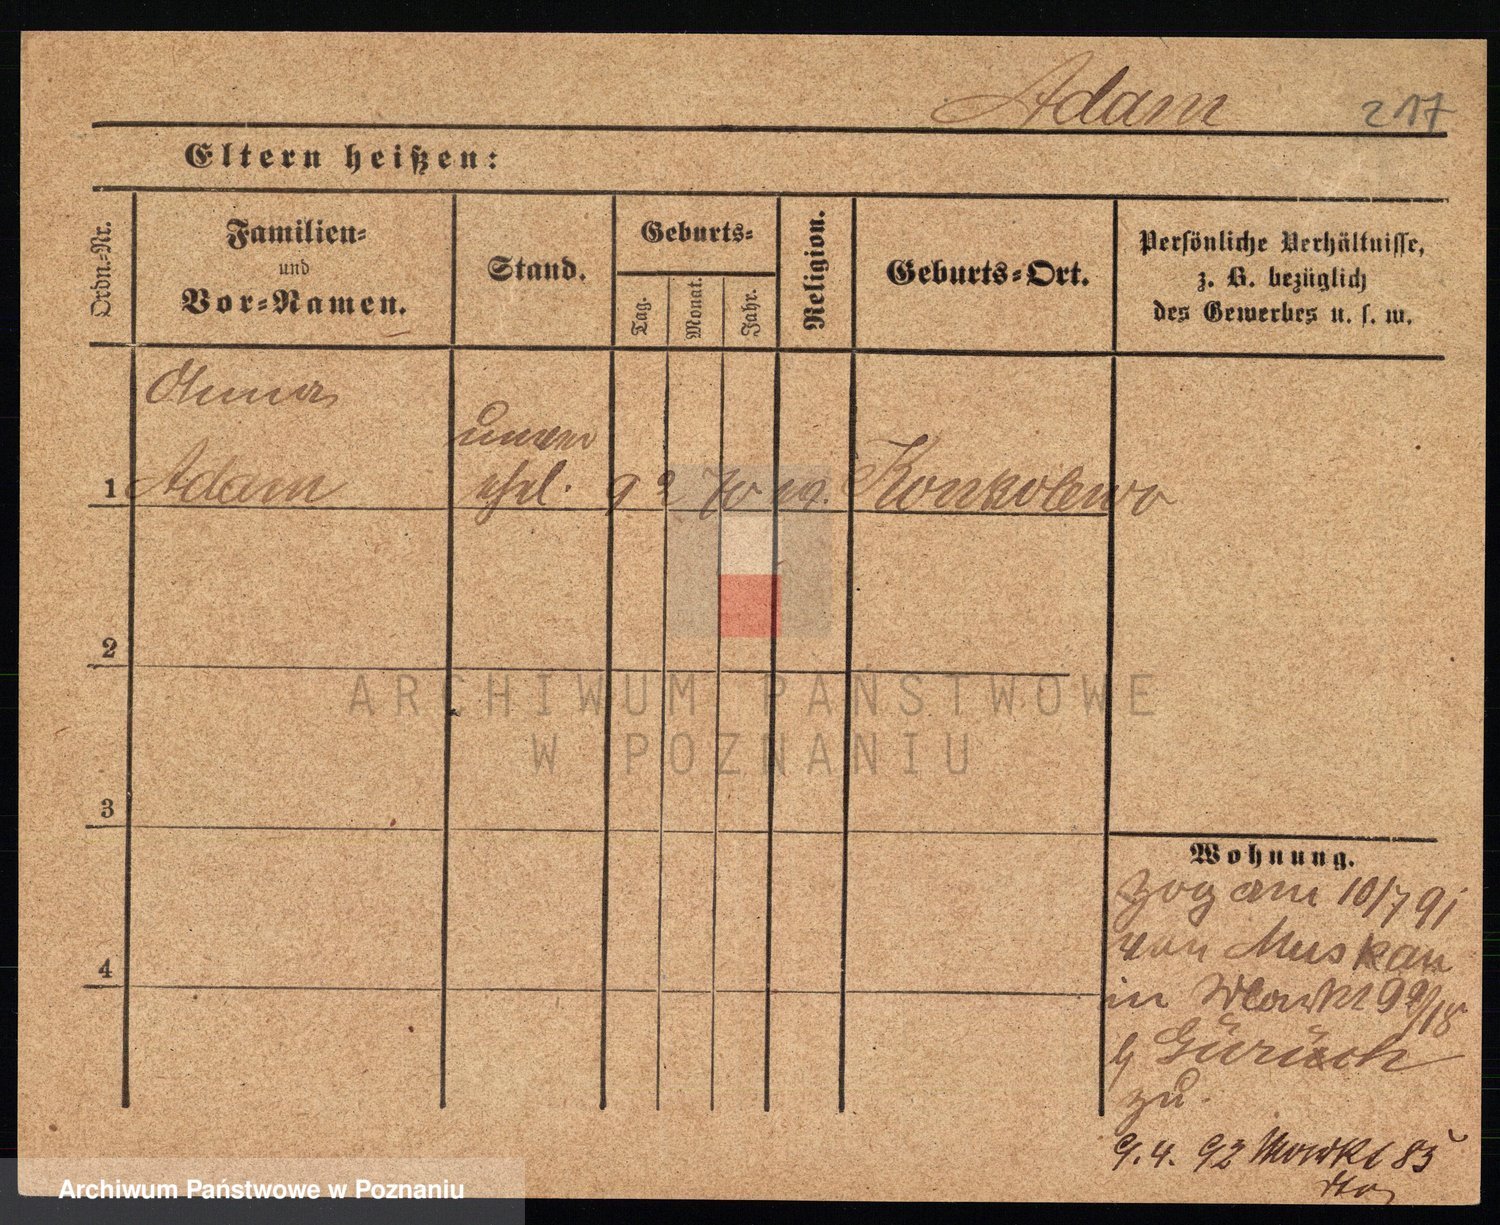 Adam 217
Eltern heißen:
Ordn.-Nr.
Familien-
und
Vor-Namen.
Stand.
Geburts-
Tag.
Monat.
Jahr.
Religion.
Geburts-Ort.
Persönliche Verhältnisse,
z. B. bezüglich
des Gewerbes u. s. w.
Anna
unver
1 Adam ehel. 9 2 70 Konkolewo
2
3
4
Wohnung.
Zog am 10/7 91
von Muskau
in
zu.
9.4. 92 85
ARCHIWUM PAŃSTWOWE
W POZNANIU
Archiwum Państwowe w Poznaniu